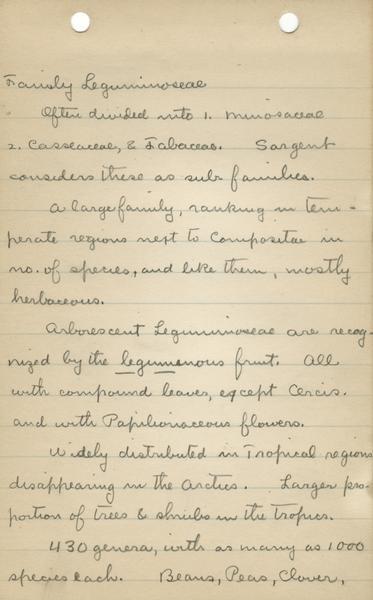 Family Leguminoseae
Often divided into 1. Mimosaceae
2. Casseaceae, & Fabaceae. Sargent
considers these as sub families.
A large family, ranking in tem-
perate regions next to Compositae in
no. of species, and like them, mostly
herbaceous.
Arborescent Leguminoseae are recog-
nized by the legumenous fruit. All
with compound leaves, except Cercis.
and with Papilionaceous flowers.
Widely distributed in Tropical regions
disappearing in the Arctics. Larger pro-
portion of trees & shrubs in the tropics.
430 genera, with as many as 1000
species each. Beans, Peas, Clover,